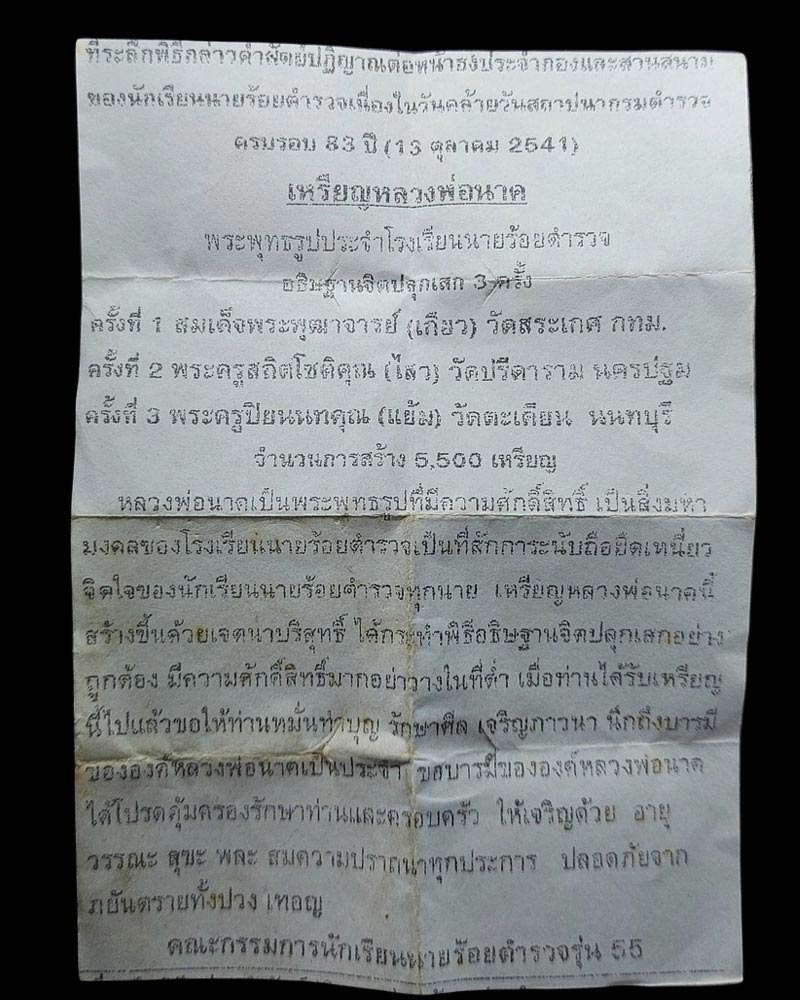 ที่ระลึกพิธีกล่าวคำสัตย์ปฏิญาณต่อหน้าธงประจำกองและสวนสนาม
ของนักเรียนนายร้อยตำรวจเนื่องในวันคล้ายวันสถาปนากรมตำรวจ
ครบรอบ 83 ปี (13 ตุลาคม 2541)
เหรียญหลวงพ่อนาค
พระพุทธรูปประจำโรงเรียนนายร้อยตำรวจ
อธิษฐานจิตปลุกเสก 3 ครั้ง
ครั้งที่ 1 สมเด็จพระพุฒาจารย์ (เกี่ยว) วัดสระเกศ กทม.
ครั้งที่ 2 พระครูสถิตโชติคุณ (ไสว) วัดปรีดาราม นครปฐม
ครั้งที่ 3 พระครูปิยนนทคุณ (แย้ม) วัดตะเคียน นนทบุรี
จำนวนการสร้าง 5,500 เหรียญ
หลวงพ่อนาคเป็นพระพุทธรูปที่มีความศักดิ์สิทธิ์ เป็นสิ่งมหา
มงคลของโรงเรียนนายร้อยตำรวจเป็นที่สักการะนับถือยึดเหนี่ยว
จิตใจของนักเรียนนายร้อยตำรวจทุกนาย เหรียญหลวงพ่อนาคนี้
สร้างขึ้นด้วยเจตนาบริสุทธิ์ ได้กระทำพิธีอธิษฐานจิตปลุกเสกอย่าง
ถูกต้อง มีความศักดิ์สิทธิ์มากอย่าวางในที่ต่ำ เมื่อท่านได้รับเหรียญ
นี้ไปแล้วขอให้ท่านหมั่นทำบุญ รักษาศีล เจริญภาวนา นึกถึงบารมี
ขององค์หลวงพ่อนาคเป็นประจำ ขอบารมีขององค์หลวงพ่อนาค
ได้โปรดคุ้มครองรักษาท่านและครอบครัว ให้เจริญด้วย อายุ
วรรณะ สุขะ พละ สมความปรารถนาทุกประการ ปลอดภัยจาก
ภยันตรายทั้งปวง เทอญ
คณะกรรมการนักเรียนนายร้อยตำรวจรุ่น 55